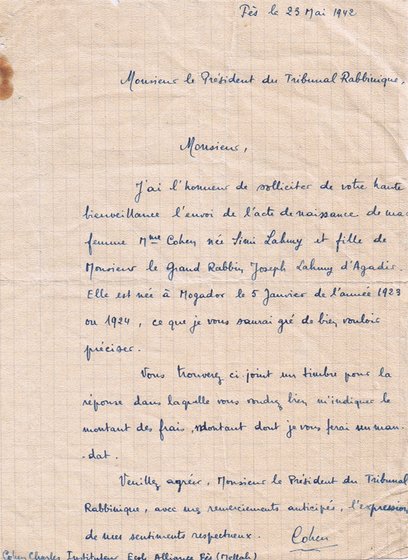 Fès le 23 Mai 1942
Monsieur le Président du Tribunal Rabbinique,
Monsieur,
J'ai l'honneur de solliciter de votre haute
bienveillance l'envoi de l'acte de naissance de ma
femme Mme Cohen née Simi Lahmy et fille de
Monsieur le Grand Rabbin Joseph Lahmy d'Agadir.
Elle est née à Mogador le 5 Janvier de l'année 1923
ou 1924, ce que je vous saurai gré de bien vouloir
préciser.
Vous trouverez ci joint un timbre pour la
réponse dans laquelle vous voudrez bien m'indiquer le
montant des frais, montant dont je vous ferai un man-
dat.
Veuillez agréer, Monsieur le Président du Tribunal
Rabbinique, avec mes remerciements anticipés, l'expression
de mes sentiments respectueux. Cohen
Cohen Charles Instituteur Ecole Alliance Fès (Mellah)